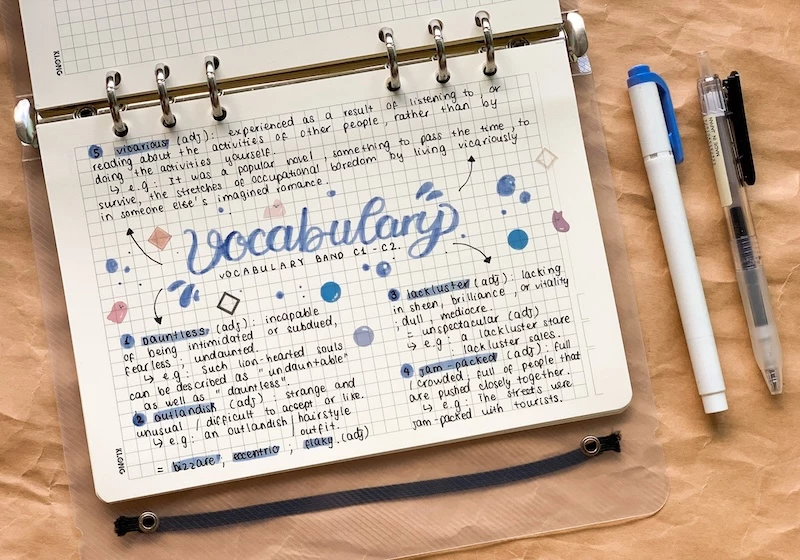 KLONG
5 vicarious (adj): experienced as a result of listening to or
reading about the activities of other people, rather than by
doing the activities yourself.
↳ e.g: It was a popular novel, something to pass the time, to
survive, the stretches of occupational boredom by living vicariously
in someone else's imagined romance.
Vocabulary
VOCABULARY BAND C1-C2.
1 dauntless (adj): incapable
of being intimidated or subdued,
fearless, undaunted.
↳ e.g: Such lion-hearted souls
can be described as "undauntable"
as well as "dauntless".
2 outlandish (adj): strange and
unusual / difficult to accept or like.
↳ e.g: an outlandish / hairstyle
/ outfit.
= bizzare, eccentric, flaky (adj)
3 lackluster (adj): lacking
in sheen, brilliance, or vitality
: dull, mediocre.
= unspectacular (adj)
↳ e.g: a lackluster stare
lackluster sales.
4 jam-packed (adj): full
/ crowded full of people that
are pushed closely together.
↳ e.g: The streets were
jam-packed with tourists.
KLONG